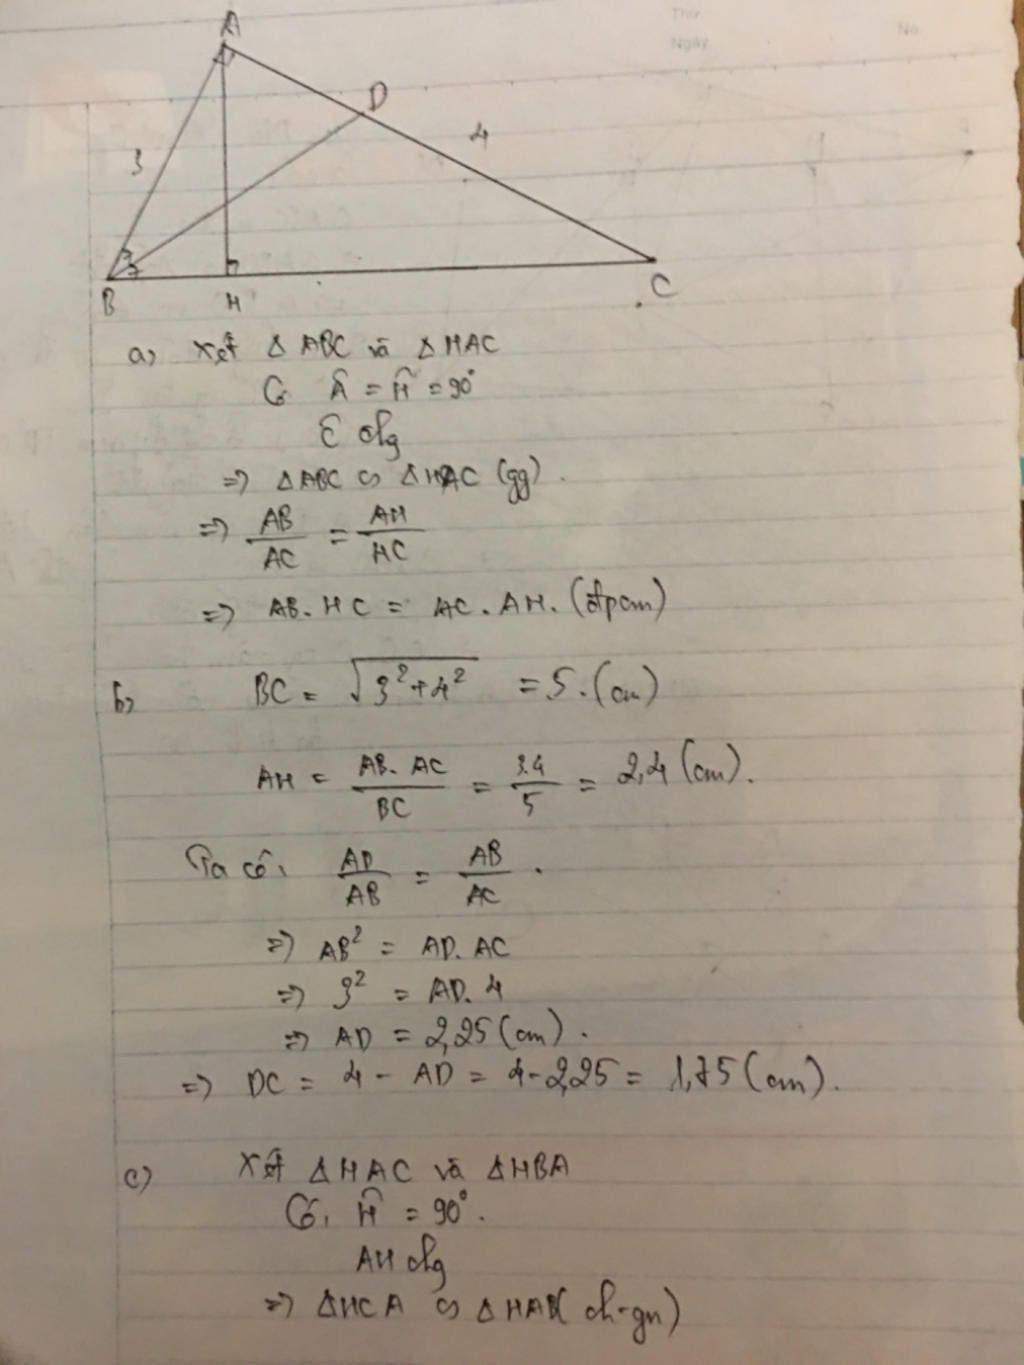 Thứ
Ngày
No
A
D
3
4
B
H
C
a) Xét Δ ABC và Δ HAC
Có Â = Ĥ = 90°
Ĉ chg
=> ΔABC ∽ ΔHAC (gg).
=> AB/AC = AH/HC
=> AB.HC = AC.AH. (đpcm)
b) BC = √3²+4² = 5.(cm)
AH = AB.AC/BC = 3.4/5 = 2,4 (cm).
Ta có: AD/AB = AB/AC.
=> AB² = AD.AC
=> 3² = AD.4
=> AD = 2,25 (cm).
=> DC = 4 - AD = 4-2,25 = 1,75 (cm).
c) Xét ΔHAC và ΔHBA
Có, Ĥ = 90°.
AH chg
=> ΔHCA ∽ ΔHAB( ch-gn)